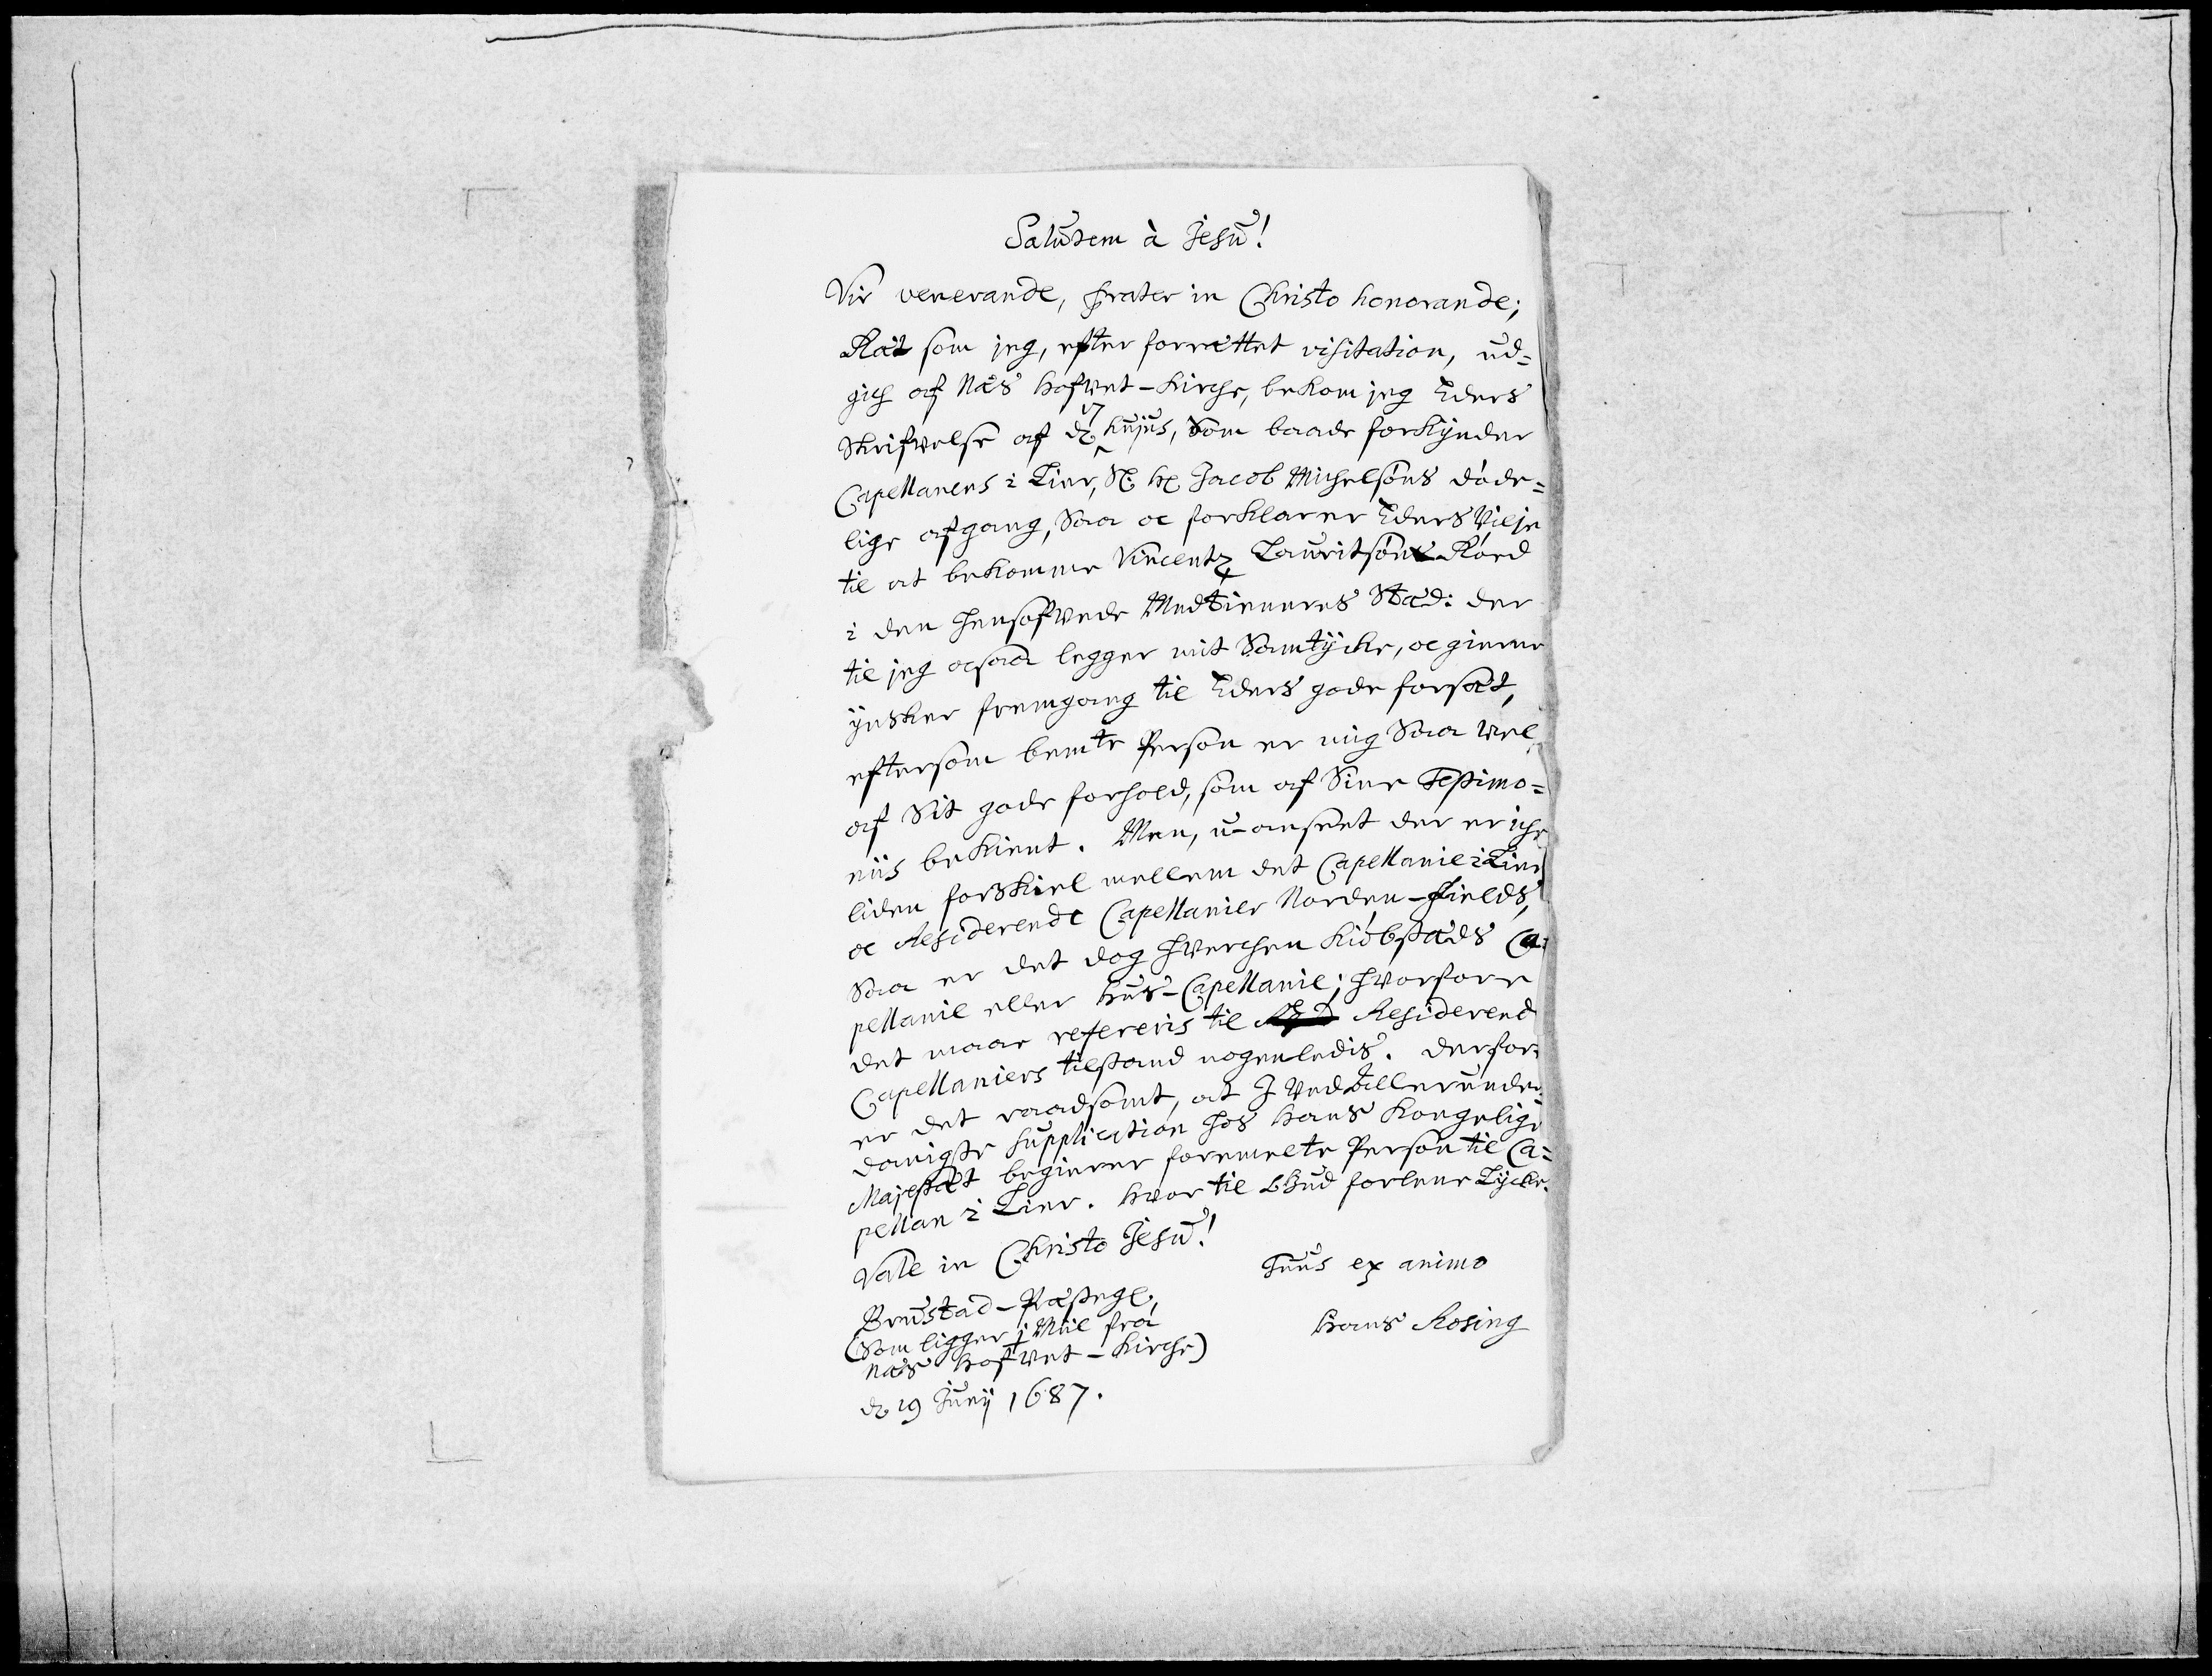 Salutem à Jesu!
Vir venerande, frater in Christo honorande;
Ræt som jeg, efter forrættet visitation, ud=
gich af Næs Hofvet-Kirche, bekom jeg Eders
Skrifvelse af dn 7 hujus, Som baade forkynder
Capellanens i Lier, Sl: Hr Jacob Michelsøns døde=
lige afgang, Saa oc forklarer Eders Vilje
til at bekomme Vincentz Lauritsøn Røed
i den hensofvede Medtieneres Stæd: der
til jeg ocsaa legger mit Samtycke, oc gierne
ynsker fremgang til Eders gode forsæt,
eftersom bemte Person er mig Saa vel
af Sit gode forhold, som af Sine Testimo=
niis bekient. Men, u-anseet der er iche
liden forskiel mellem det Capellanie i Lier
oc Residerende Capellanier Norden-Fields,
Saa er det dog hverchen Kiøbstæds Ca=
pellanie eller Huus-Capellanie; hvorfore
det maae refereris til Residerend
Capellaniers tilstand nogenledis. Derfor
er det raadsomt, at I Ved allerunder=
danigste Supplication hos Hans Kongelige
Majestæt begierer foremelte Person til Ca=
pellan i Lier. Hvor til Gud forlene Lycke.
Vale in Christo Jesu!
Tuus ex animo
Hans Rosing
Brustad-Præstegl.
(Som ligger j Miil fra
Næs Hofvet-Kirche)
dn 19 Junij 1687.